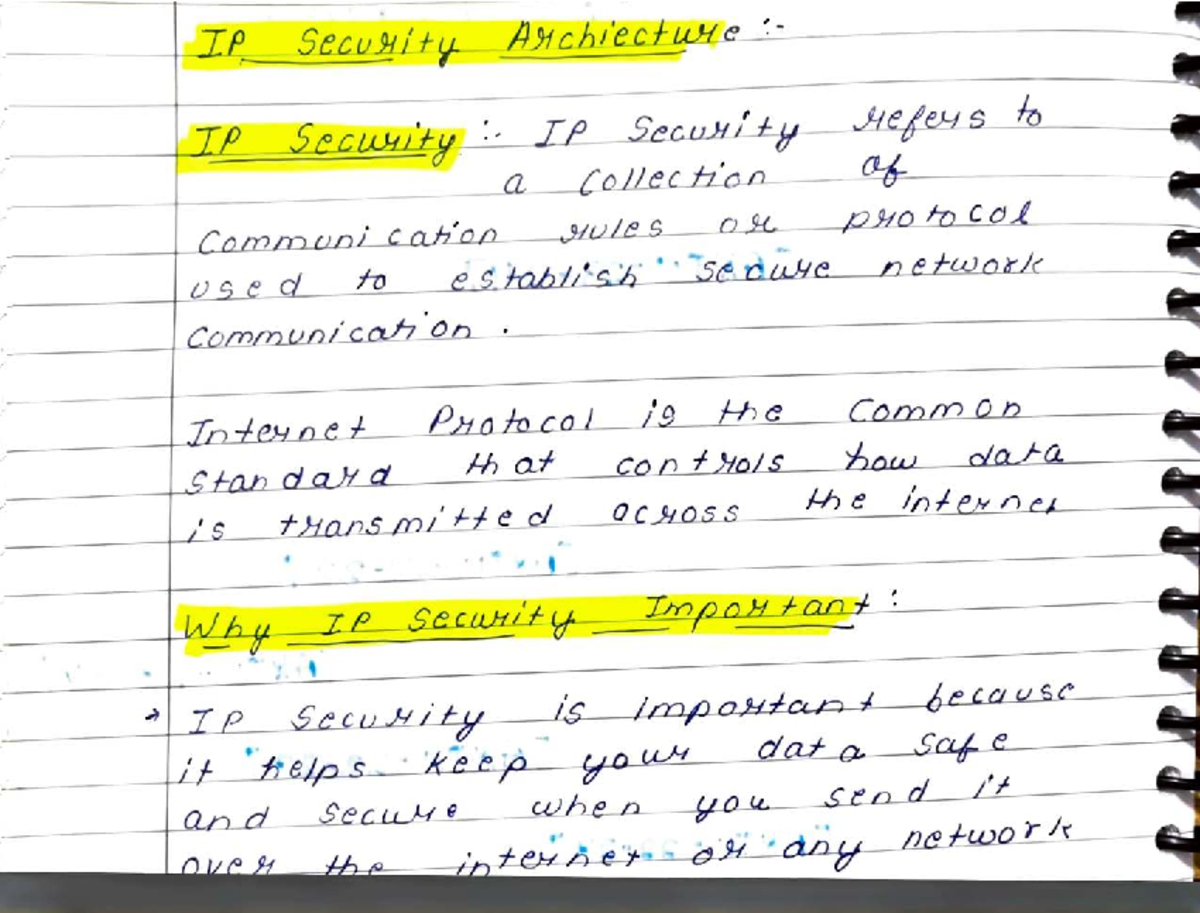 IP Security Archiecture :-
IP Security :- IP Security refers to
a Collection of
Communication rules or protocol
used to establish secure network
Communication .
Internet Protocol is the Common
Standard that controls how data
is transmitted across the internet
Why IP Security Important :
→ IP Security is important because
it helps keep your data safe
and secure when you send it
over the internet or any network